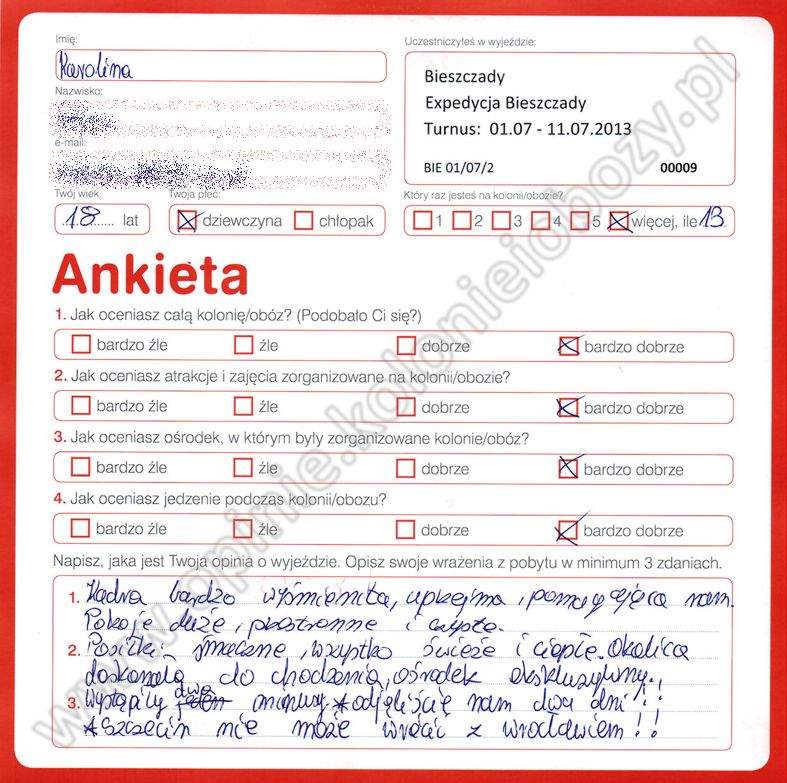 Imię:
Karolina
Uczestniczyłeś w wyjeździe:
Bieszczady
Expedycja Bieszczady
Turnus: 01.07 - 11.07.2013
BIE 01/07/2 00009
Nazwisko:
e-mail:
Twój wiek:
18 lat
Twoja płeć:
dziewczyna chłopak
Który raz jesteś na kolonii/obozie?
1 2 3 4 5 więcej, ile 13
Ankieta
1. Jak oceniasz całą kolonię/obóz? (Podobało Ci się?)
bardzo źle źle dobrze bardzo dobrze
2. Jak oceniasz atrakcje i zajęcia zorganizowane na kolonii/obozie?
bardzo źle źle dobrze bardzo dobrze
3. Jak oceniasz ośrodek, w którym były zorganizowane kolonie/obóz?
bardzo źle źle dobrze bardzo dobrze
4. Jak oceniasz jedzenie podczas kolonii/obozu?
bardzo źle źle dobrze bardzo dobrze
Napisz, jaka jest Twoja opinia o wyjeździe. Opisz swoje wrażenia z pobytu w minimum 3 zdaniach.
1. Kadra bardzo wyśmienita, uprzejma, pomagająca nam.
Pokoje duże, przestronne i czyste.
2. Posiłki smaczne, wszystko świeże i ciepłe. Okolica
doskonała do chodzenia, ośrodek ekskluzywny.
3. Wystąpiły dwa minusy *odjęliście nam dwa dni!!
*Szczecin nie może wracić z wrocławiem!!
www.opinie.kolonieiobozy.pl